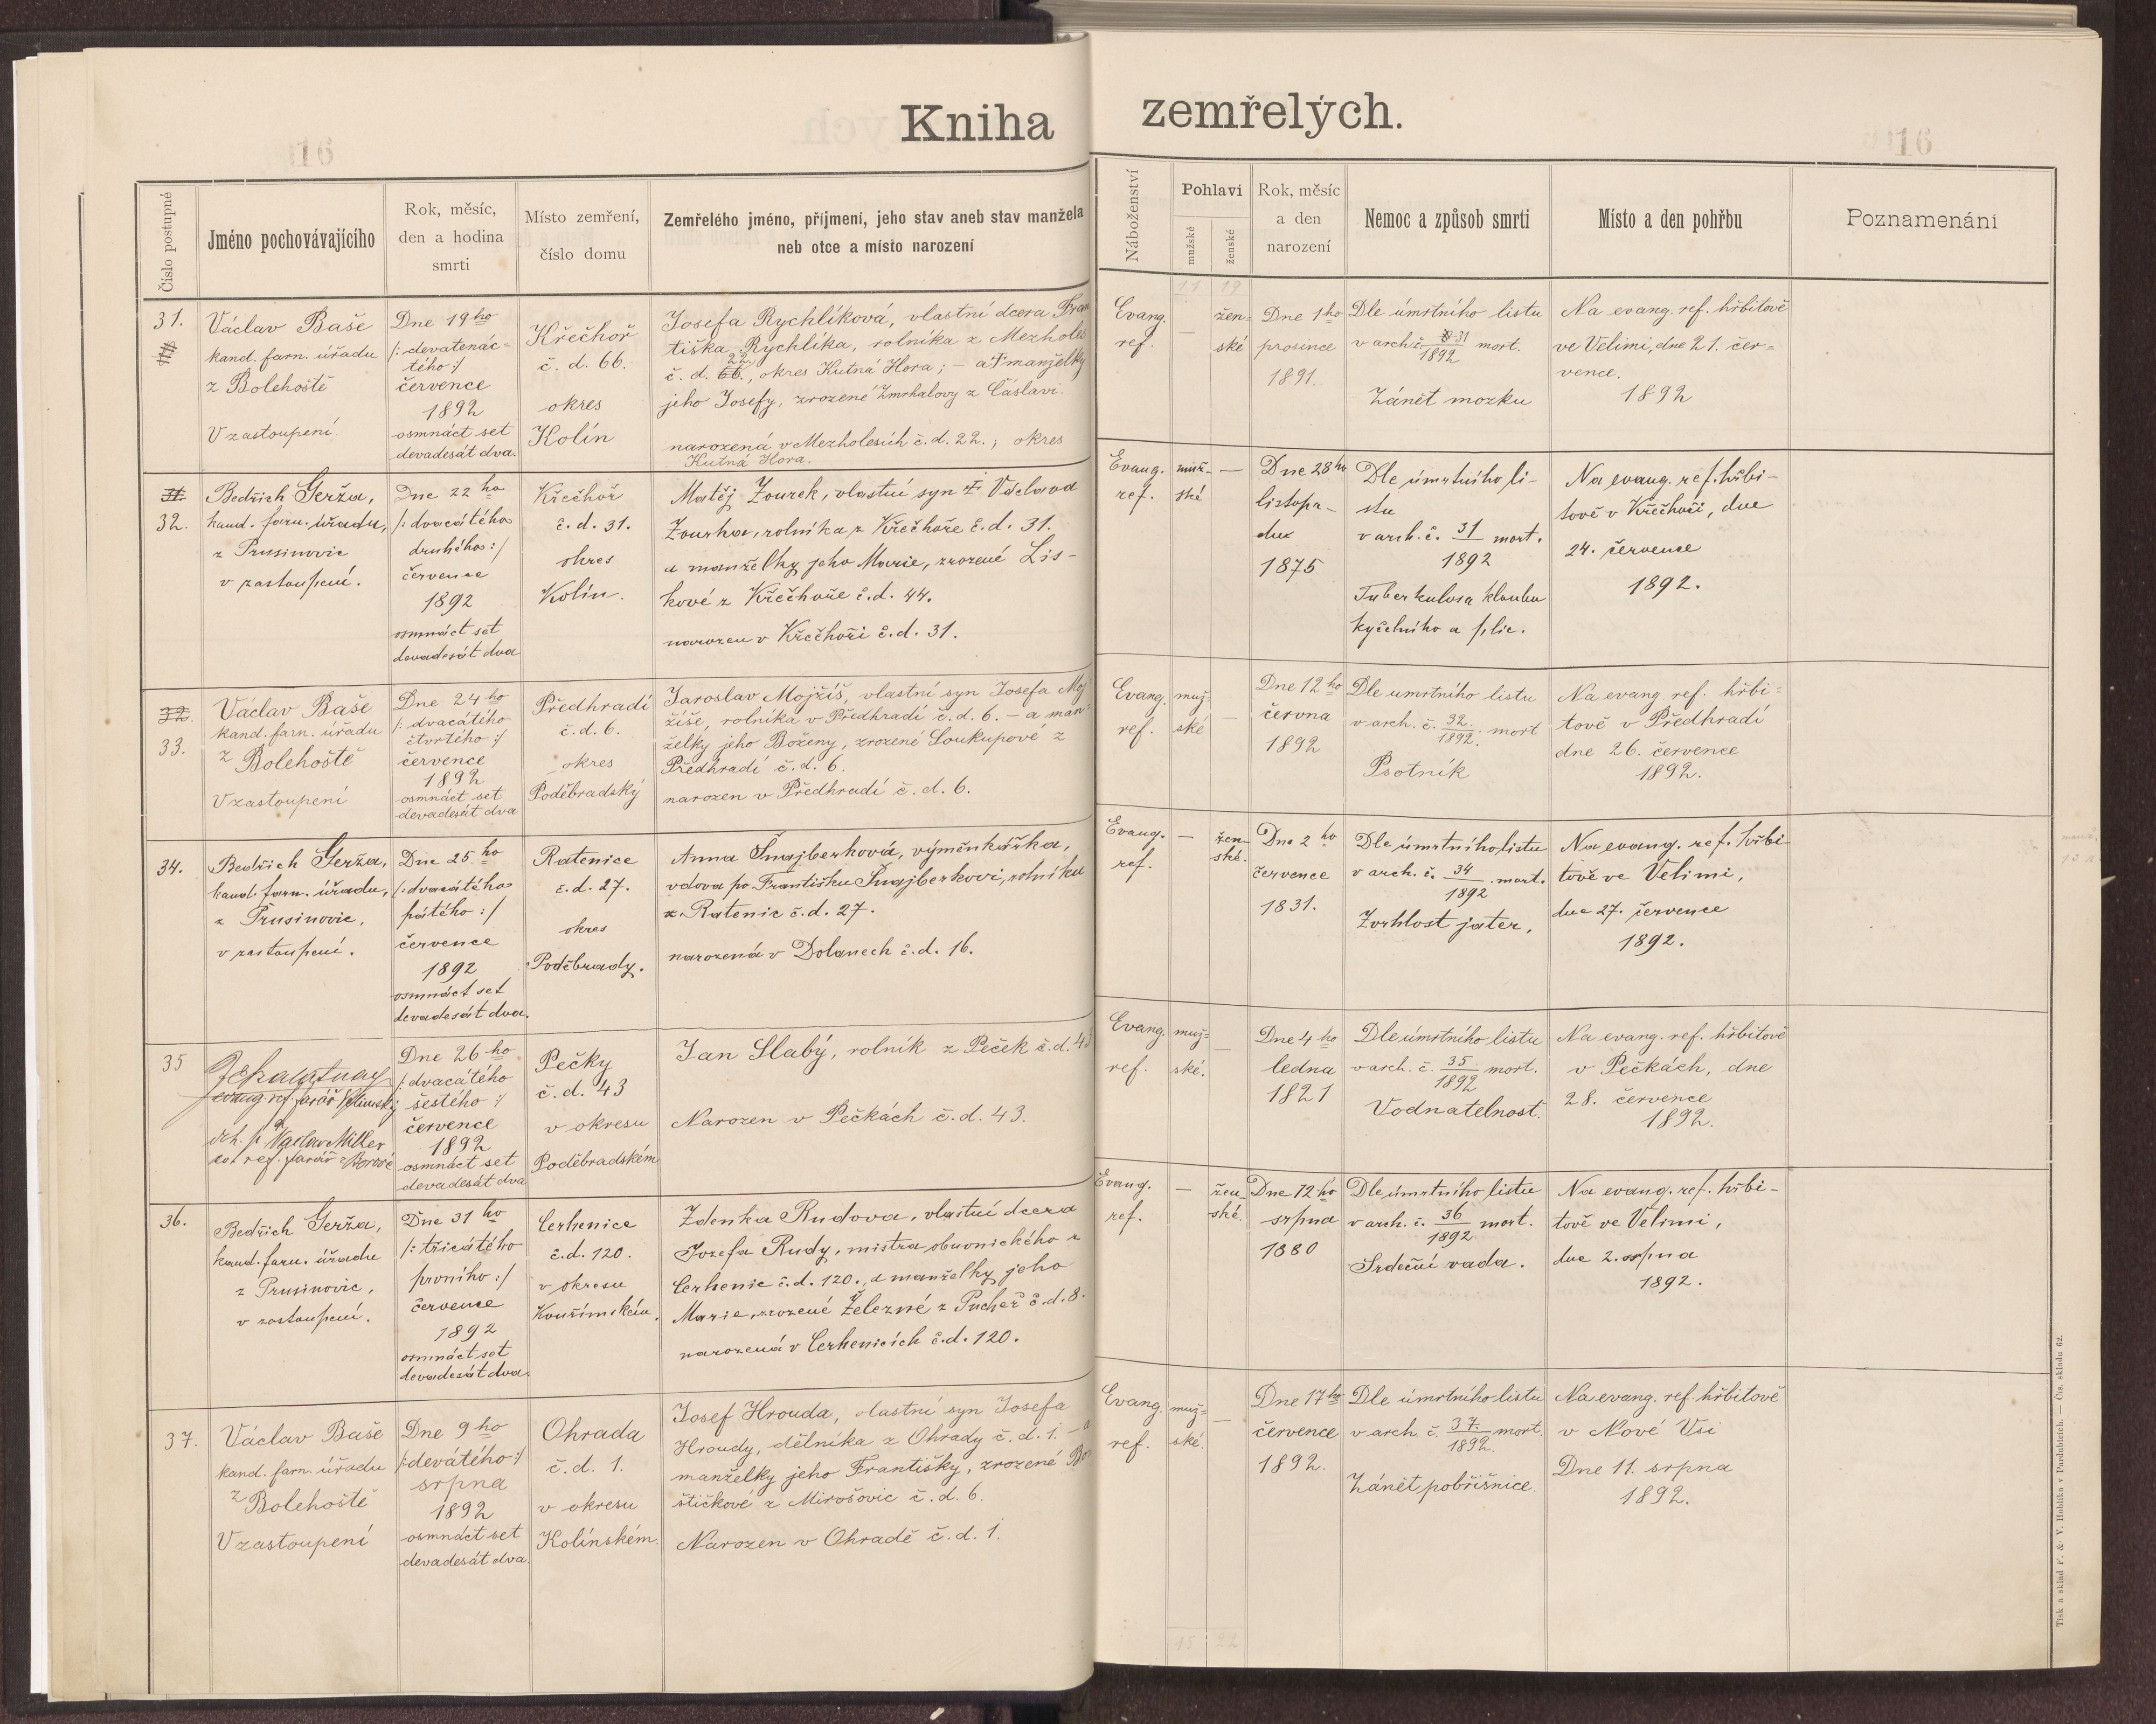 Kniha zemřelých.
16
16
Číslo postupné
Jméno pochovávajícího
Rok, měsíc,
den a hodina
smrti
Místo zemření,
číslo domu
Zemřelého jméno, příjmení, jeho stav aneb stav manžela
neb otce a místo narození
Náboženství
Pohlaví
mužské
ženské
Rok, měsíc
a den
narození
Nemoc a způsob smrti
Místo a den pohřbu
Poznamenání
11 19
31.
Václav Baše
kand. farn. úřadu
z Bolehoště
V zastoupení
Dne 19ho
/: devatenác=
tého :/
července
1892
osmnáct set
devadesát dva.
Křečhoř
č. d. 66.
okres
Kolín
Josefa Rychlíková, vlastní dcera Fran
tiška Rychlíka, rolníka z Mezholes
22.
č. d. 66., okres Kutná Hora; – a † manželky
jeho Josefy, zrozené Zmrhalovy z Čáslavi.
narozená v Mezholesích č. d. 22.; okres
Kutná Hora.
Evang.
ref.
—
žen=
ské
Dne 1ho
prosince
1891.
Dle úmrtního listu
v arch. č. 31 mort.
1892
Zánět mozku
Na evang. ref. hřbitově
ve Velimi, dne 21. čer=
vence.
1892
31.
32.
Bedřich Gerža,
kand. farn. úřadu,
z Prusinovic
v zastoupení.
Dne 22ho
/: dvacátého
druhého :/
července
1892
osmnáct set
devadesát dva
Křečhoř
č. d. 31.
okres
Kolín.
Matěj Zourek, vlastní syn † Václava
Zourka, rolníka z Křečhoře č. d. 31.
a manželky jeho Marie, zrozené Lis-
kové z Křečhoře č. d. 44.
narozen v Křečhoři č. d. 31.
Evang.
ref.
muž-
ské
—
Dne 28ho
listopa-
du
1875
Dle úmrtního li-
stu
v arch. č. 31 mort.
1892
Tuberkulosa kloubu
kyčelního a plic.
Na evang. ref. hřbi-
tově v Křečhoři, dne
24. července
1892.
32.
33.
Václav Baše
kand. farn. úřadu
z Bolehoště
V zastoupení
Dne 24ho
/: dvacátého
čtvrtého :/
července
1892
osmnáct set
devadesát dva
Předhradí
č. d. 6.
okres
Poděbradský
Jaroslav Mojžíš, vlastní syn Josefa Moj
žíše, rolníka v Předhradí č. d. 6. – a man=
želky jeho Boženy, zrozené Loukupové z
Předhradí č. d. 6.
narozen v Předhradí č. d. 6.
Evang.
ref.
muž=
ské
—
Dne 12ho
června
1892
Dle umrtního listu
v arch. č. 32. mort
1892.
Psotník
Na evang. ref. hřbi=
tově v Předhradí
dne 26. července
1892.
34.
Bedřich Gerža,
kand. farn. úřadu,
z Prusinovic,
v zastoupení.
Dne 25ho
/: dvacátého
pátého :/
července
1892
osmnáct set
devadesát dva.
Ratenice
č. d. 27.
okres
Poděbrady.
Anna Šnajberková, výměnkářka,
vdova po Františku Šnajberkovi, rolníku
z Ratenic č. d. 27.
narozená v Dolanech č. d. 16.
Evang.
ref.
—
žen-
ské.
Dne 2ho
července
1831.
Dle úmrtního listu
v arch. č. 34 mort.
1892
Zvrhlost jater,
Na evang. ref. hřbi-
tově ve Velimi,
dne 27. července
1892.
35
evang. ref. farář Velimský
Václav Miller
ev. ref. farář z Borové
Dne 26ho
/: dvacátého
šestého :/
července
1892
osmnáct set
devadesát dva
Pečky
č. d. 43
v okresu
Poděbradském
Jan Slabý, rolník z Peček č. d. 43
Narozen v Pečkách č. d. 43.
Evang.
ref.
muž=
ské.
—
Dne 4ho
ledna
1821
Dle úmrtního listu
v arch. č. 35 mort.
1892
Vodnatelnost.
Na evang. ref. hřbitově
v Pečkách, dne
28. července
1892.
36.
Bedřich Gerža,
kand. farn. úřadu
z Prusinovic,
v zastoupení.
Dne 31ho
/: třicátého
prvního :/
července
1892
osmnáct set
devadesát dva.
Cerhenice
č. d. 120.
v okresu
Kouřimském.
Zdenka Rudova, vlastní dcera
Josefa Rudy, mistra obuvnického z
Cerhenic č. d. 120., a manželky jeho
Marie, zrozené Železné z Pucheř č. d. 8.
narozená v Cerhenicích č. d. 120.
Evang.
ref.
—
žen-
ské.
Dne 12ho
srpna
1880
Dle úmrtního listu
v arch. č. 36 mort.
1892
Srdeční vada.
Na evang. ref. hřbi-
tově ve Velimi,
dne 2. srpna
1892.
37.
Václav Baše
kand. farn. úřadu
z Bolehoště
V zastoupení
Dne 9ho
/: devátého :/
srpna
1892
osmnáct set
devadesát dva.
Ohrada
č. d. 1.
v okresu
Kolínském.
Josef Hrouda, vlastní syn Josefa
Hroudy, dělníka z Ohrady č. d. 1. – a
manželky jeho Františky, zrozené Bo
štičkové z Mirošovic č. d. 6.
Narozen v Ohradě č. d. 1.
Evang.
ref.
muž=
ské.
—
Dne 17ho
července
1892.
Dle úmrtního listu
v arch. č. 37. mort.
1892.
Zánět pobřišnice.
Na evang. ref. hřbitově
v Nové Vsi
Dne 11. srpna
1892.
15 22
Tisk a sklad F. & V. Hoblíka v Pardubicích. — Čís. skladu 62.